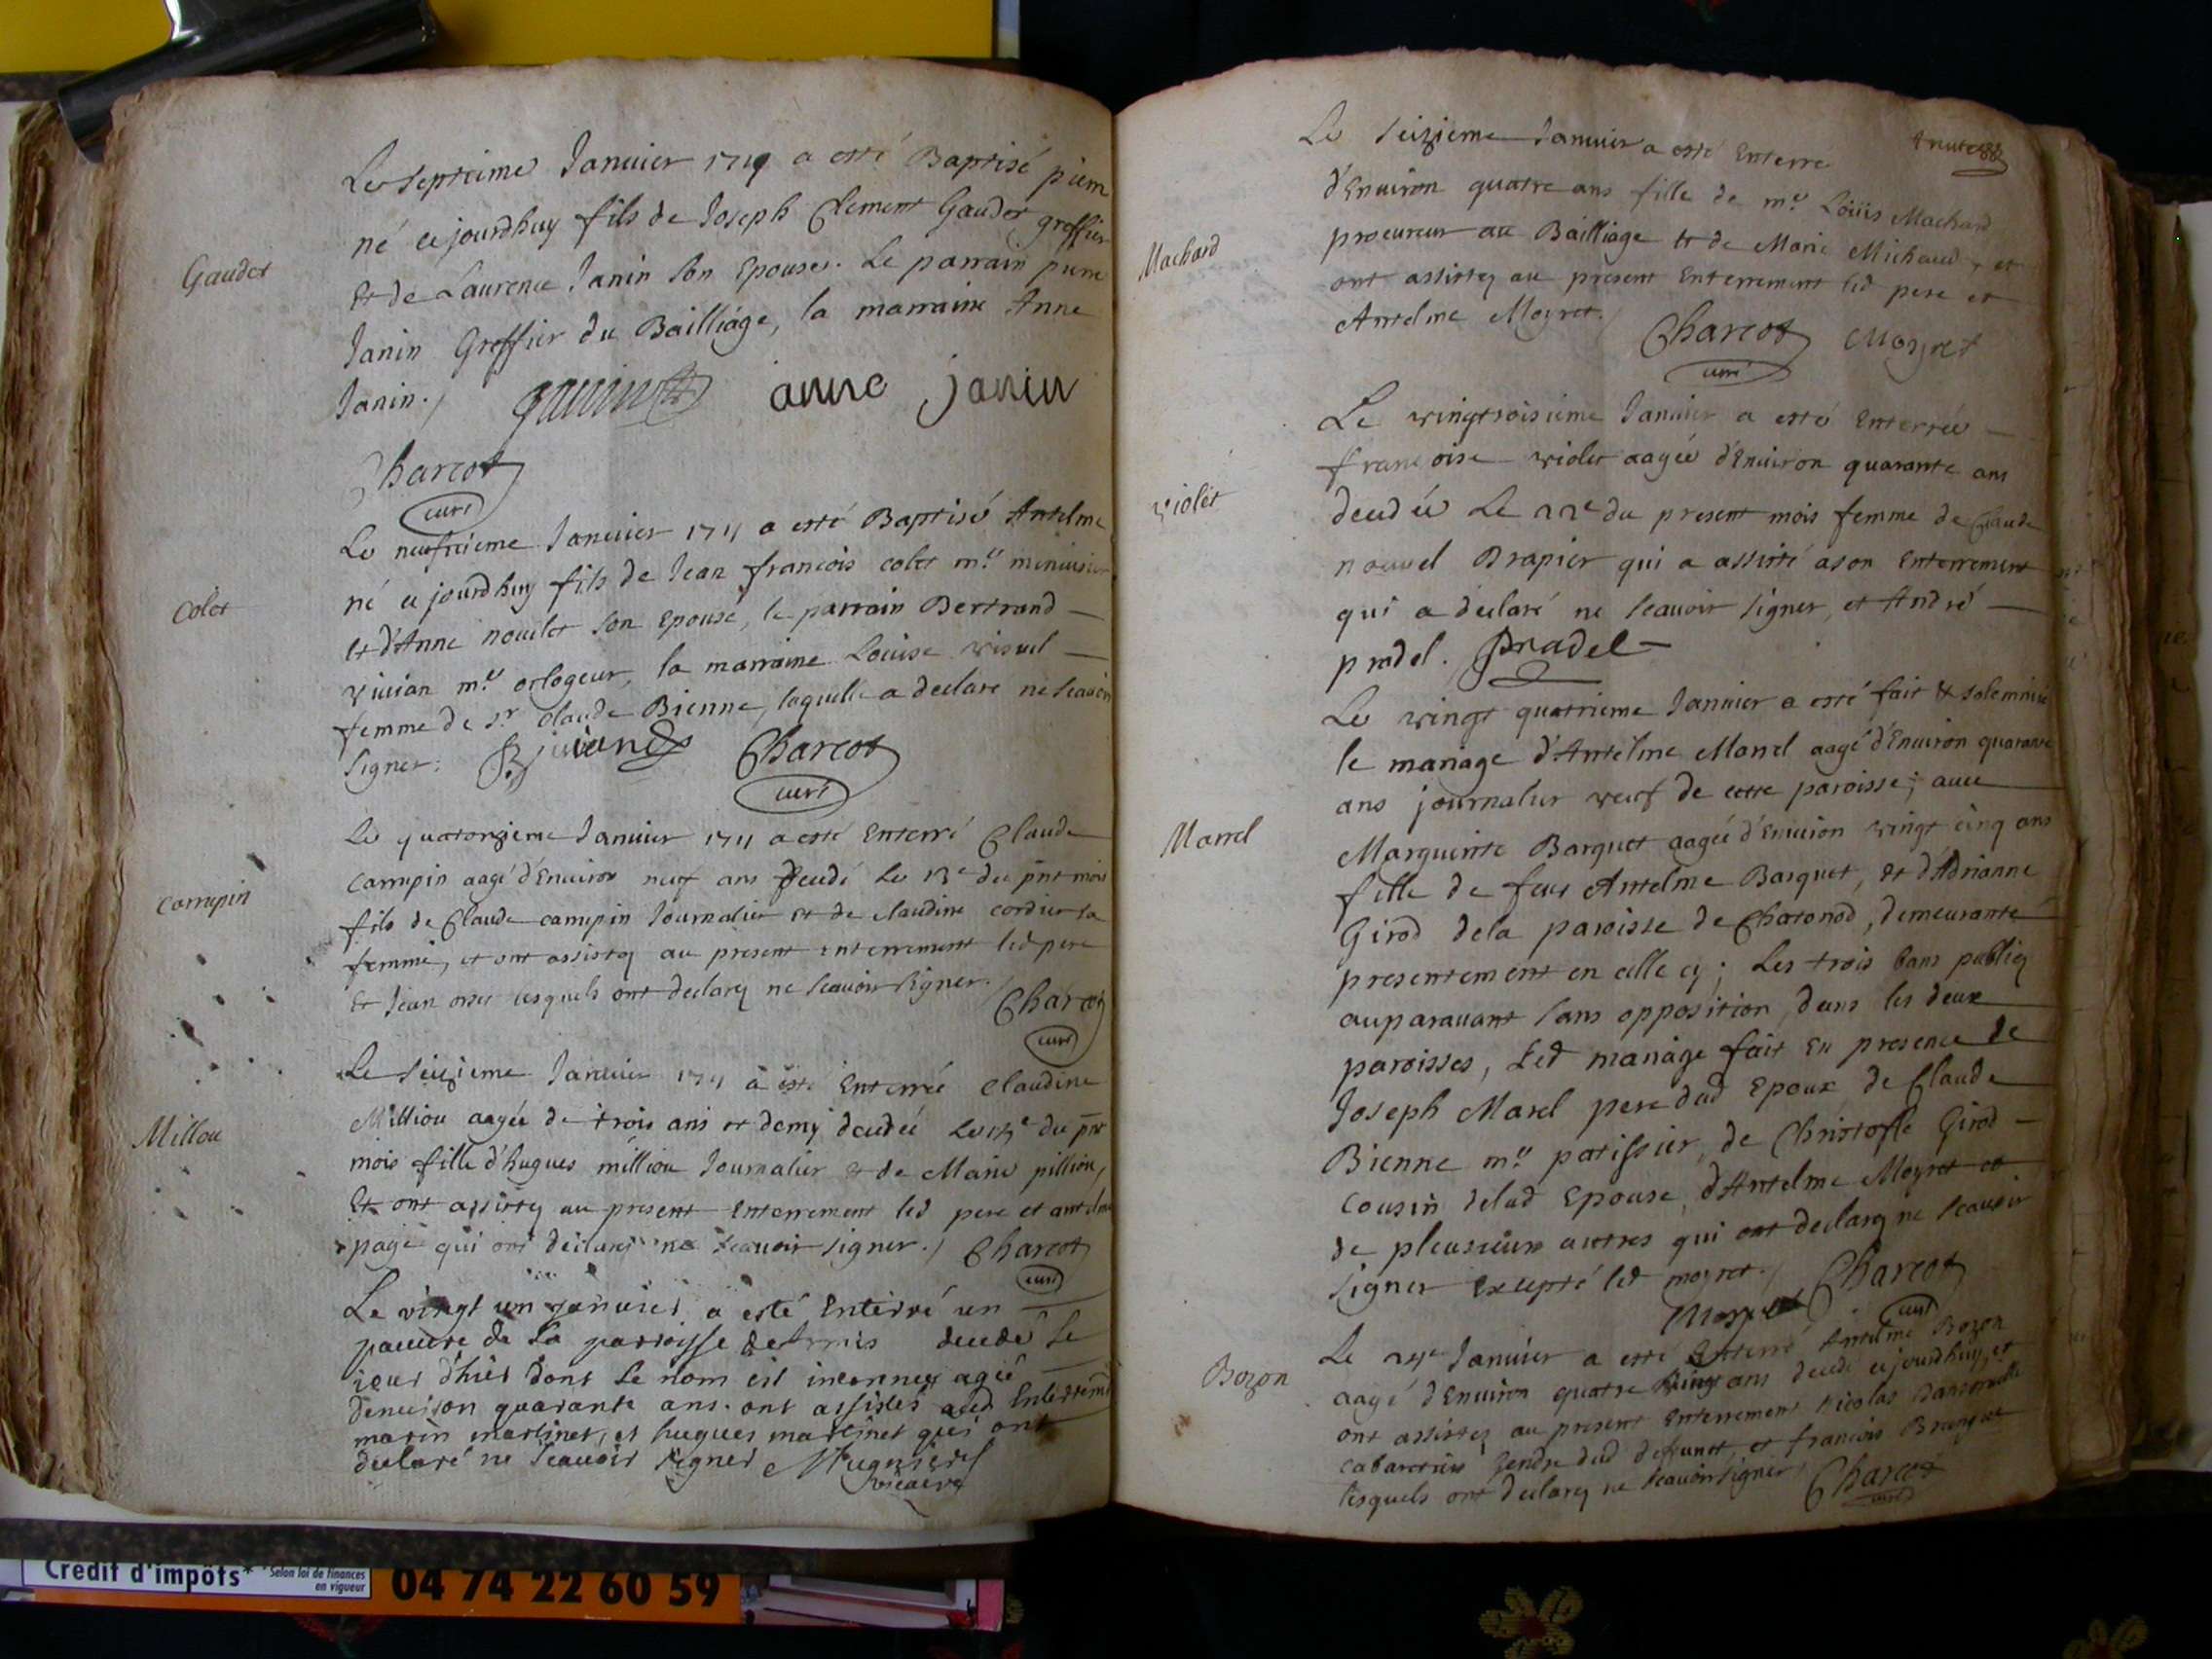 Le septieme Januier 1711 a esté Baptisé pierre
né ce jourdhuy fils de Joseph Clement Gaudet greffier
Gaudet
et de Laurence Janin son Epouse. Le parrain pierre
Janin Greffier du Bailliage, la marraine Anne
Janin./
anne janin
Charcot
curé
Le neufvieme Januier 1711 a esté Baptisé Antelme
né ce jourdhuy fils de Jean francois colet mre menuisier
Colet
et d'Anne nouelet son Epouse, le parrain Bertrand
vivian mre orlogeur, la marraine Louise
femme de sr claude Bienne, laquelle a declaré ne scauoir
signer. Charcot
curé
Le quatorzieme Januier 1711 a esté Enterré Claude
Carrupin aagé d'Enuiron neuf ans decedé Le 13e du pñt mois
carrupin
fils de Claude carrupin Journalier et de claudine cordier sa
femme, et ont assistez au present enterrement led pere
et Jean lesquels ont declarez ne scauoir signer./
Charcot
curé
Le seizieme Januier 1711 a esté Enterrée claudine
Milliou aagée de trois ans et demy decedée Le 15e du pñt
Millou
mois fille d'hugues milliou Journalier et de Marie pilliou,
Et ont assistez au present Enterrement led pere et antelme
page qui ont declarez ne scauoir signer./ Charcot
curé
Le vingt un januier a esté Enterré un
pauure de la parroisse decedé le
jour d'hier dont le nom est inconneu agé
denuiron quarante ans. ont assistés aud Enterrement
marin martinet, et hugues martinet qui ont
declaré ne scauoir signer Mugnier
vicaire
Le seizieme Januier a esté Enterré
d'Enuiron quatre ans fille de mre Loüis Machard
Machard
procureur au Bailliage et de Marie Michaud, et
ont assistez au present Enterrement led pere et
Antelme Moyret./
Charcot Moyret
curé
Le vingtroisieme Januier a esté Enterrée
francoise violet aagée d'Enuiron quarante ans
violet
decedée Le 22e du present mois femme de Claude
nouuel Drapier qui a assisté a son Enterrement
qui a declaré ne scauoir signer, et André
pradel. Pradel
Le vingt quatrieme Januier a esté fait & solemnisé
le mariage d'Antelme Marrel aagé d'Enuiron quarante
ans journalier veuf de cette paroisse; auec
Marrel
Marguerite Barquet aagée d'Enuiron vingt cinq ans
fille de feu Antelme Barquet, et d'Adrianne
Girod dela paroisse de Chatonod, demeurante
presentement en celle cy; Les trois bans publiez
auparauant sans opposition dans les deux
paroisses, Led mariage fait en presence de
Joseph Marel pere dud Epoux, de Claude
Bienne mre patissier, de Christofle Girod
cousin delad Epouse, d'Antelme Moyret et
de plusieurs autres qui ont declarez ne scauoir
signer Excepté led moyret./ Charcot
Moyret
curé
Le 24e Januier a esté Enterré Antelme Bozon
Bozon
aagé d'Enuiron quatre vingt ans decedé ce jourdhuy, et
ont assistez au present Enterrement Nicolas
cabaretier Gendre dud deffunct, et francois
lesquels ont declarez ne scauoir signer/ Charcot
curé
Crédit d'impôts* *Selon loi de finances
en vigueur
04 74 22 60 59